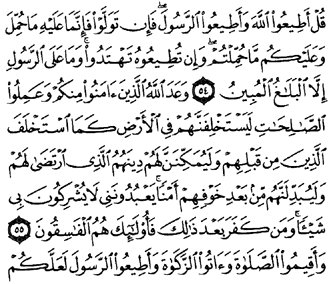 قُلْ أَطِيعُوا۟ ٱللَّهَ وَأَطِيعُوا۟ ٱلرَّسُولَ ۖ فَإِن تَوَلَّوْا۟ فَإِنَّمَا عَلَيْهِ مَا حُمِّلَ
وَعَلَيْكُم مَّا حُمِّلْتُمْ ۖ وَإِن تُطِيعُوهُ تَهْتَدُوا۟ ۚ وَمَا عَلَى ٱلرَّسُولِ
إِلَّا ٱلْبَلَٰغُ ٱلْمُبِينُ ٥٤ وَعَدَ ٱللَّهُ ٱلَّذِينَ ءَامَنُوا۟ مِنكُمْ وَعَمِلُوا۟
ٱلصَّٰلِحَٰتِ لَيَسْتَخْلِفَنَّهُمْ فِى ٱلْأَرْضِ كَمَا ٱسْتَخْلَفَ
ٱلَّذِينَ مِن قَبْلِهِمْ وَلَيُمَكِّنَنَّ لَهُمْ دِينَهُمُ ٱلَّذِى ٱرْتَضَىٰ لَهُمْ
وَلَيُبَدِّلَنَّهُم مِّنۢ بَعْدِ خَوْفِهِمْ أَمْنًا ۚ يَعْبُدُونَنِى لَا يُشْرِكُونَ بِى
شَيْـًٔا ۚ وَمَن كَفَرَ بَعْدَ ذَٰلِكَ فَأُو۟لَٰٓئِكَ هُمُ ٱلْفَٰسِقُونَ ٥٥
وَأَقِيمُوا۟ ٱلصَّلَوٰةَ وَءَاتُوا۟ ٱلزَّكَوٰةَ وَأَطِيعُوا۟ ٱلرَّسُولَ لَعَلَّكُمْ